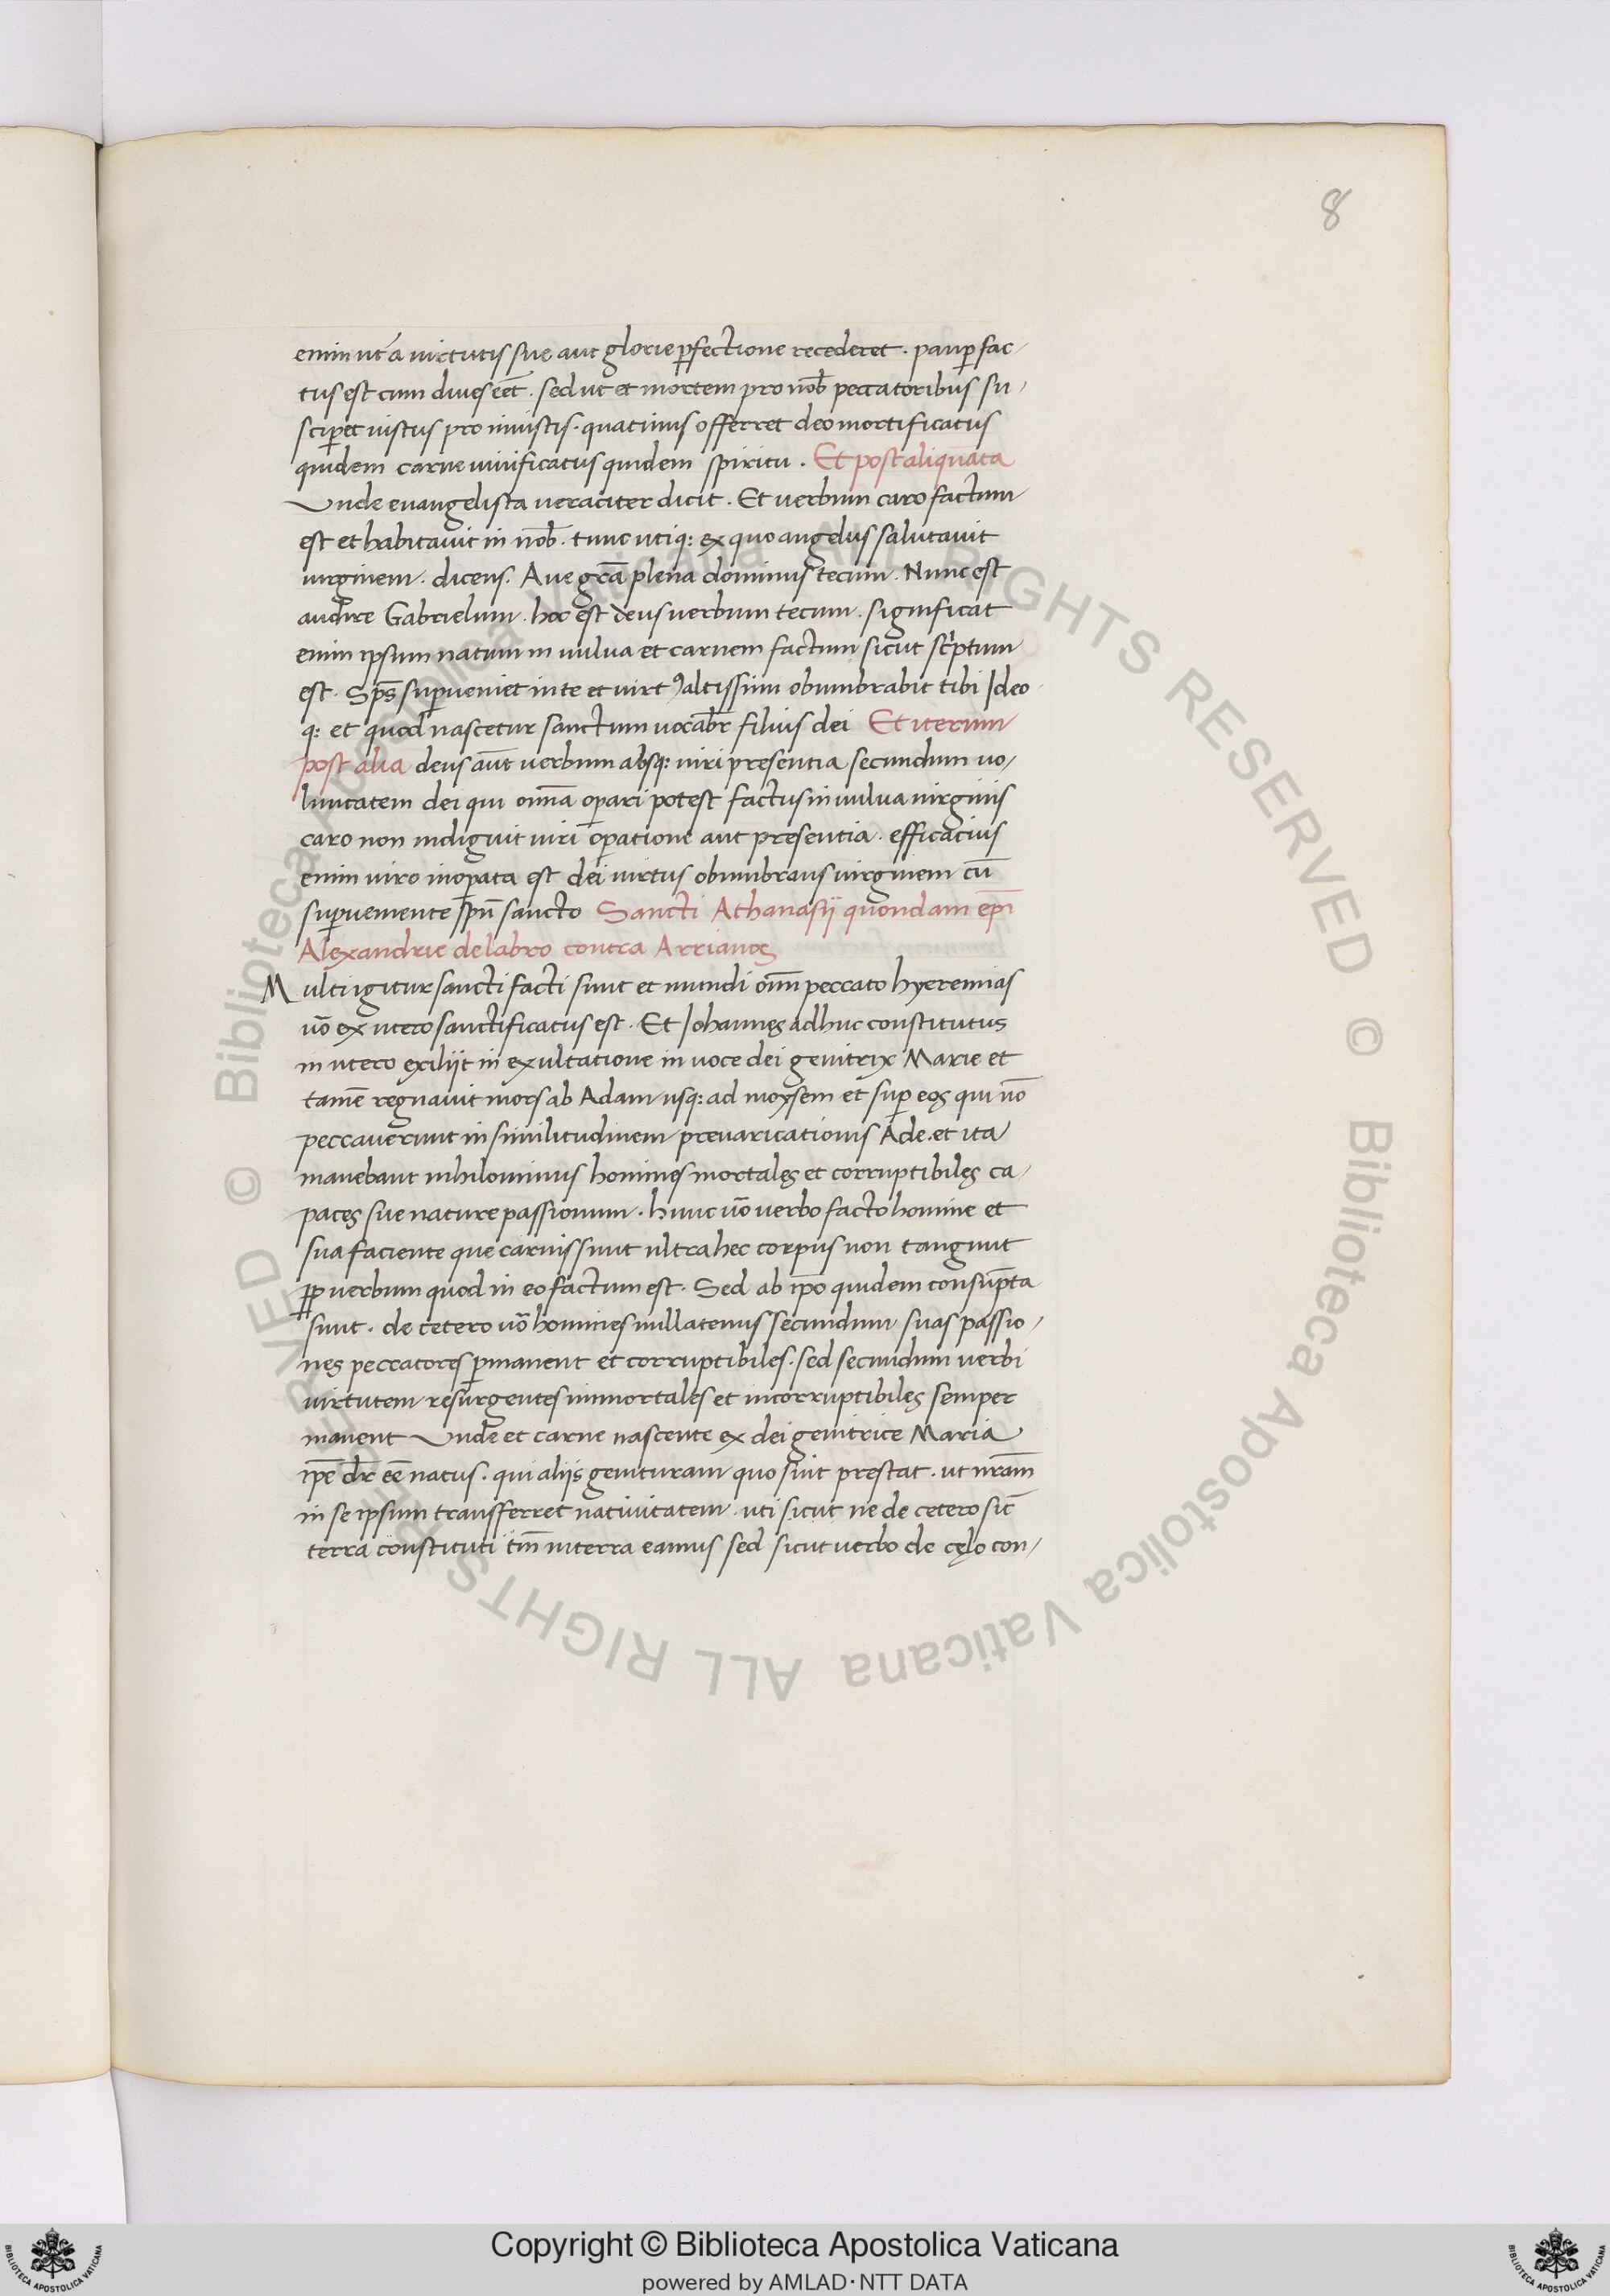 8
enim ut a virtutis sue aut glorie p̄fectione recederet . paup̄ fac-
tus est cum dives eēt . sed ut et mortem pro nob̄ peccatoribus su-
scip̄et iustus pro iniustis . quatinus offerret deo mortificatus
quidem carne vivificatus quidem spiritu . Et post aliquata
Unde euangelista ueraciter dicit . Et uerbum caro factum
est et habitauit in nob̄ . tunc utiq: ex quo angelus salutauit
uirginem . dicens . Aue grā plena dominus tecum . Nunc est
audire Gabrielum . hoc est deus uerbum tecum . significat
enim ipsum natum in uulua et carnem factum sicut sc̄ptum
est . Sps̄ sup̄ueniet in te et uirtꝰ altissimi obumbrabit tibi Ideo
q: et quod nascetur sanctum uocabr̄ filius dei Et iterum
post alia deus aūt uerbum absq: uiri presentia secundum uo-
luntatem dei qui omīa op̄ari potest factus in uulua uirginis
caro non indiguit uiri op̄atione aut presentia . efficacius
enim uiro inop̄ata est dei uirtus obumbrans uirginem cū
sup̄ueniente spū sancto Sancti Athanasij quondam epī
Alexandrie de labro contra Arrianos
Multi igitur sancti facti sunt et mundi omī peccato hyeremias
uō ex utero sanctificatus est . Et Johannęs adhuc constitutus
in utero exiliit in exultatione in uoce dei genitrix Marie et
tamē regnauit mors ab Adam usq: ad moysem et sup̄ eos qui nō
peccauerunt in similitudinem preuaricationis Ade . et ita
manebant nihilominus homines mortalęs et corruptibilęs ca-
pacęs sue nature passionum . hunc uō uerbo facto homine et
sua faciente que carnis sunt ultra hec corpus non tangunt
pp̄ uerbum quod in eo factum est . Sed ab ip̄o quidem consūpta
sunt . de cetero uō homines nullatenus secundum suas passio-
nęs peccatores p̄manent et corruptibiles . sed secundum uerbi
uirtutem resurgentes immortales et incorruptibilęs semper
manent Unde et carne nascente ex dei genitrice Maria
ip̄e dr̄ eē natus . qui aliis genituram quo sint prestat . ut nr̄am
in se ipsum transferret natiuitatem . uti sicut ne de cetero sic̄
terra constituti tm̄ in terra eamus sed sicut uerbo de cęlo con-
© Biblioteca Apostolica Vaticana ALL RIGHTS RESERVED © Biblioteca Apostolica Vaticana ALL RIGHTS RESERVED
Copyright © Biblioteca Apostolica Vaticana
powered by AMLAD · NTT DATA
BIBLIOTECA APOSTOLICA VATICANA
BIBLIOTECA APOSTOLICA VATICANA